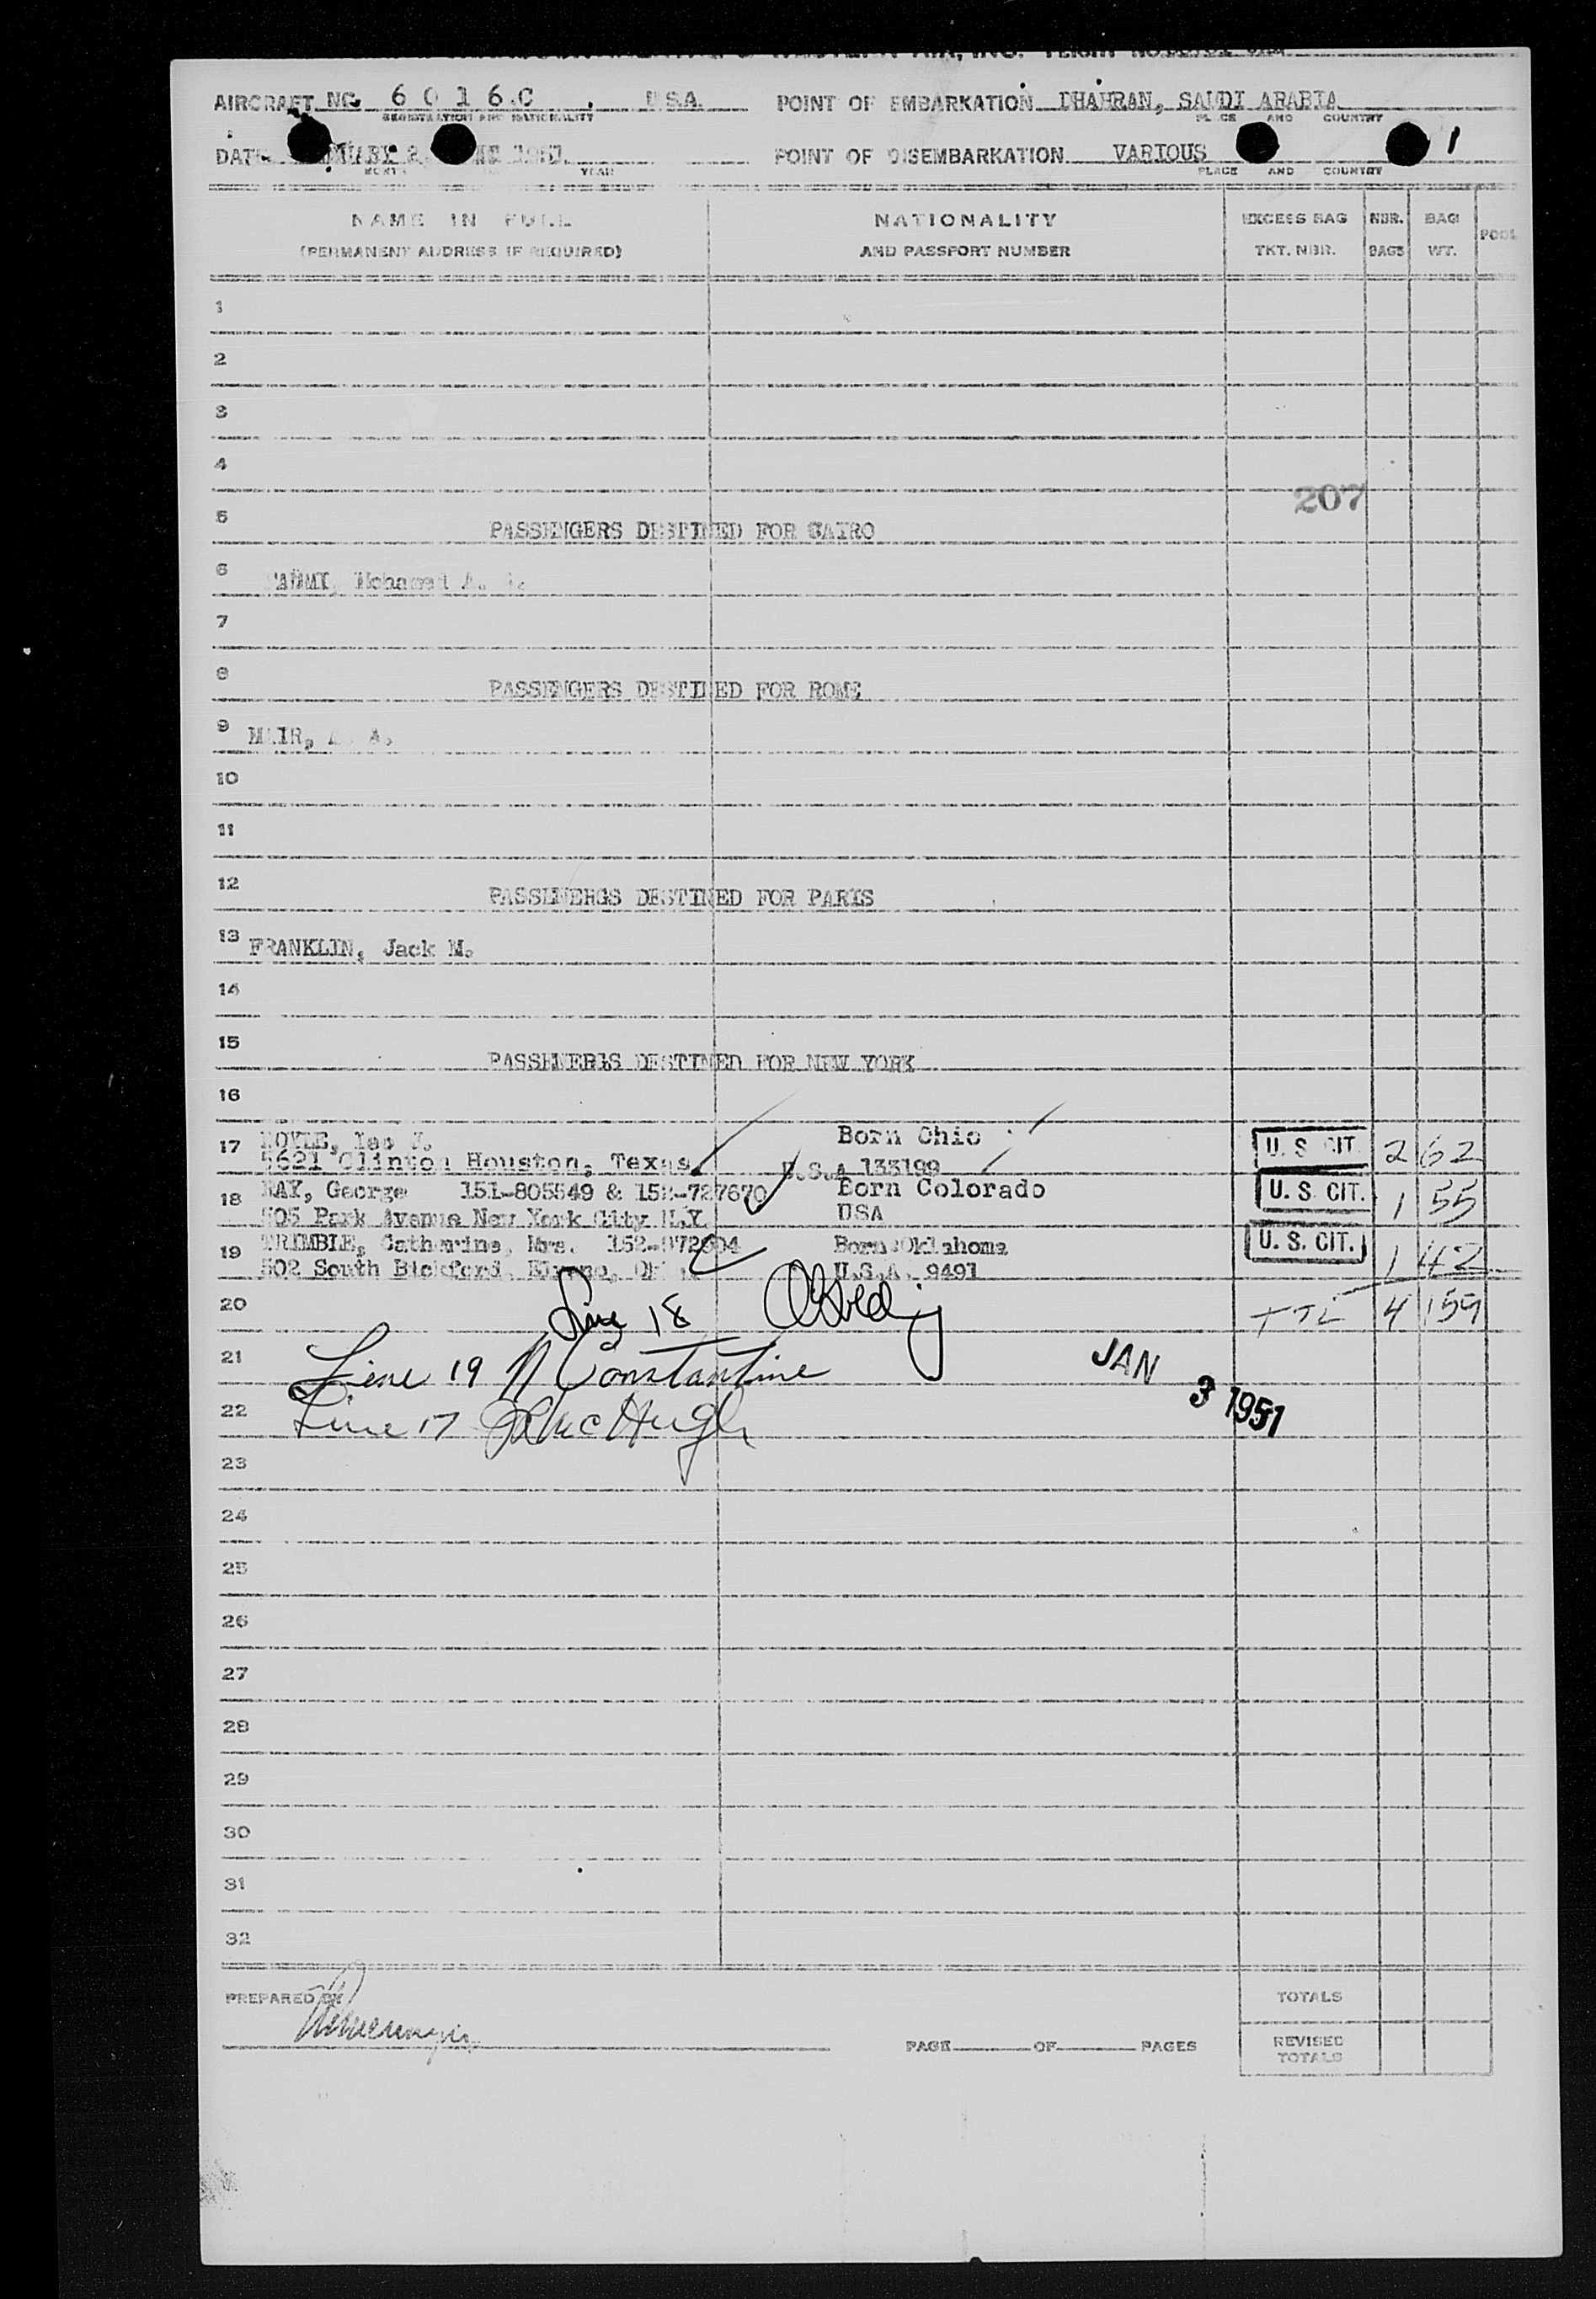 AIRCRAFT NO. 6 0 1 6 C U.S.A. POINT OF EMBARKATION DHAHRAN, SAUDI ARABIA
REGISTRATION AND NATIONALITY PLACE AND COUNTRY
DATE POINT OF DISEMBARKATION VARIOUS 1
MONTH YEAR PLACE AND COUNTRY
NAME IN FULL NATIONALITY EXCESS BAG NBR. BAG POOL
(PERMANENT ADDRESS IF REQUIRED) AND PASSPORT NUMBER TKT. NBR. BAGS WT.
1
2
3
4
207
5 PASSENGERS DESTINED FOR CAIRO
6 Mohamed A.
7
8 PASSENGERS DESTINED FOR ROME
9 A.
10
11
12 PASSENERGS DESTINED FOR PARIS
13 FRANKLIN, Jack M.
14
15 DESTINED FOR NEW YORK
16
17 Born Ohio U. S. CIT. 2 62
5621 Clinton Houston, Texas U.S.A 133199
18 RAY, George 151-805549 & 152-727670 Born Colorado U. S. CIT. 1 55
505 Park Avenue New York City N.Y. USA
19 TRIMBLE, Catherine, Mrs. Born Oklahoma U. S. CIT. 1 42
502 South Bickford U.S.A. 9491
20 Line 18 TTL 4 159
21 Line 19 N Constantine JAN 3 1951
22 Line 17 McHugh
23
24
25
26
27
28
29
30
31
32
PREPARED BY TOTALS
PAGE OF PAGES REVISED TOTALS